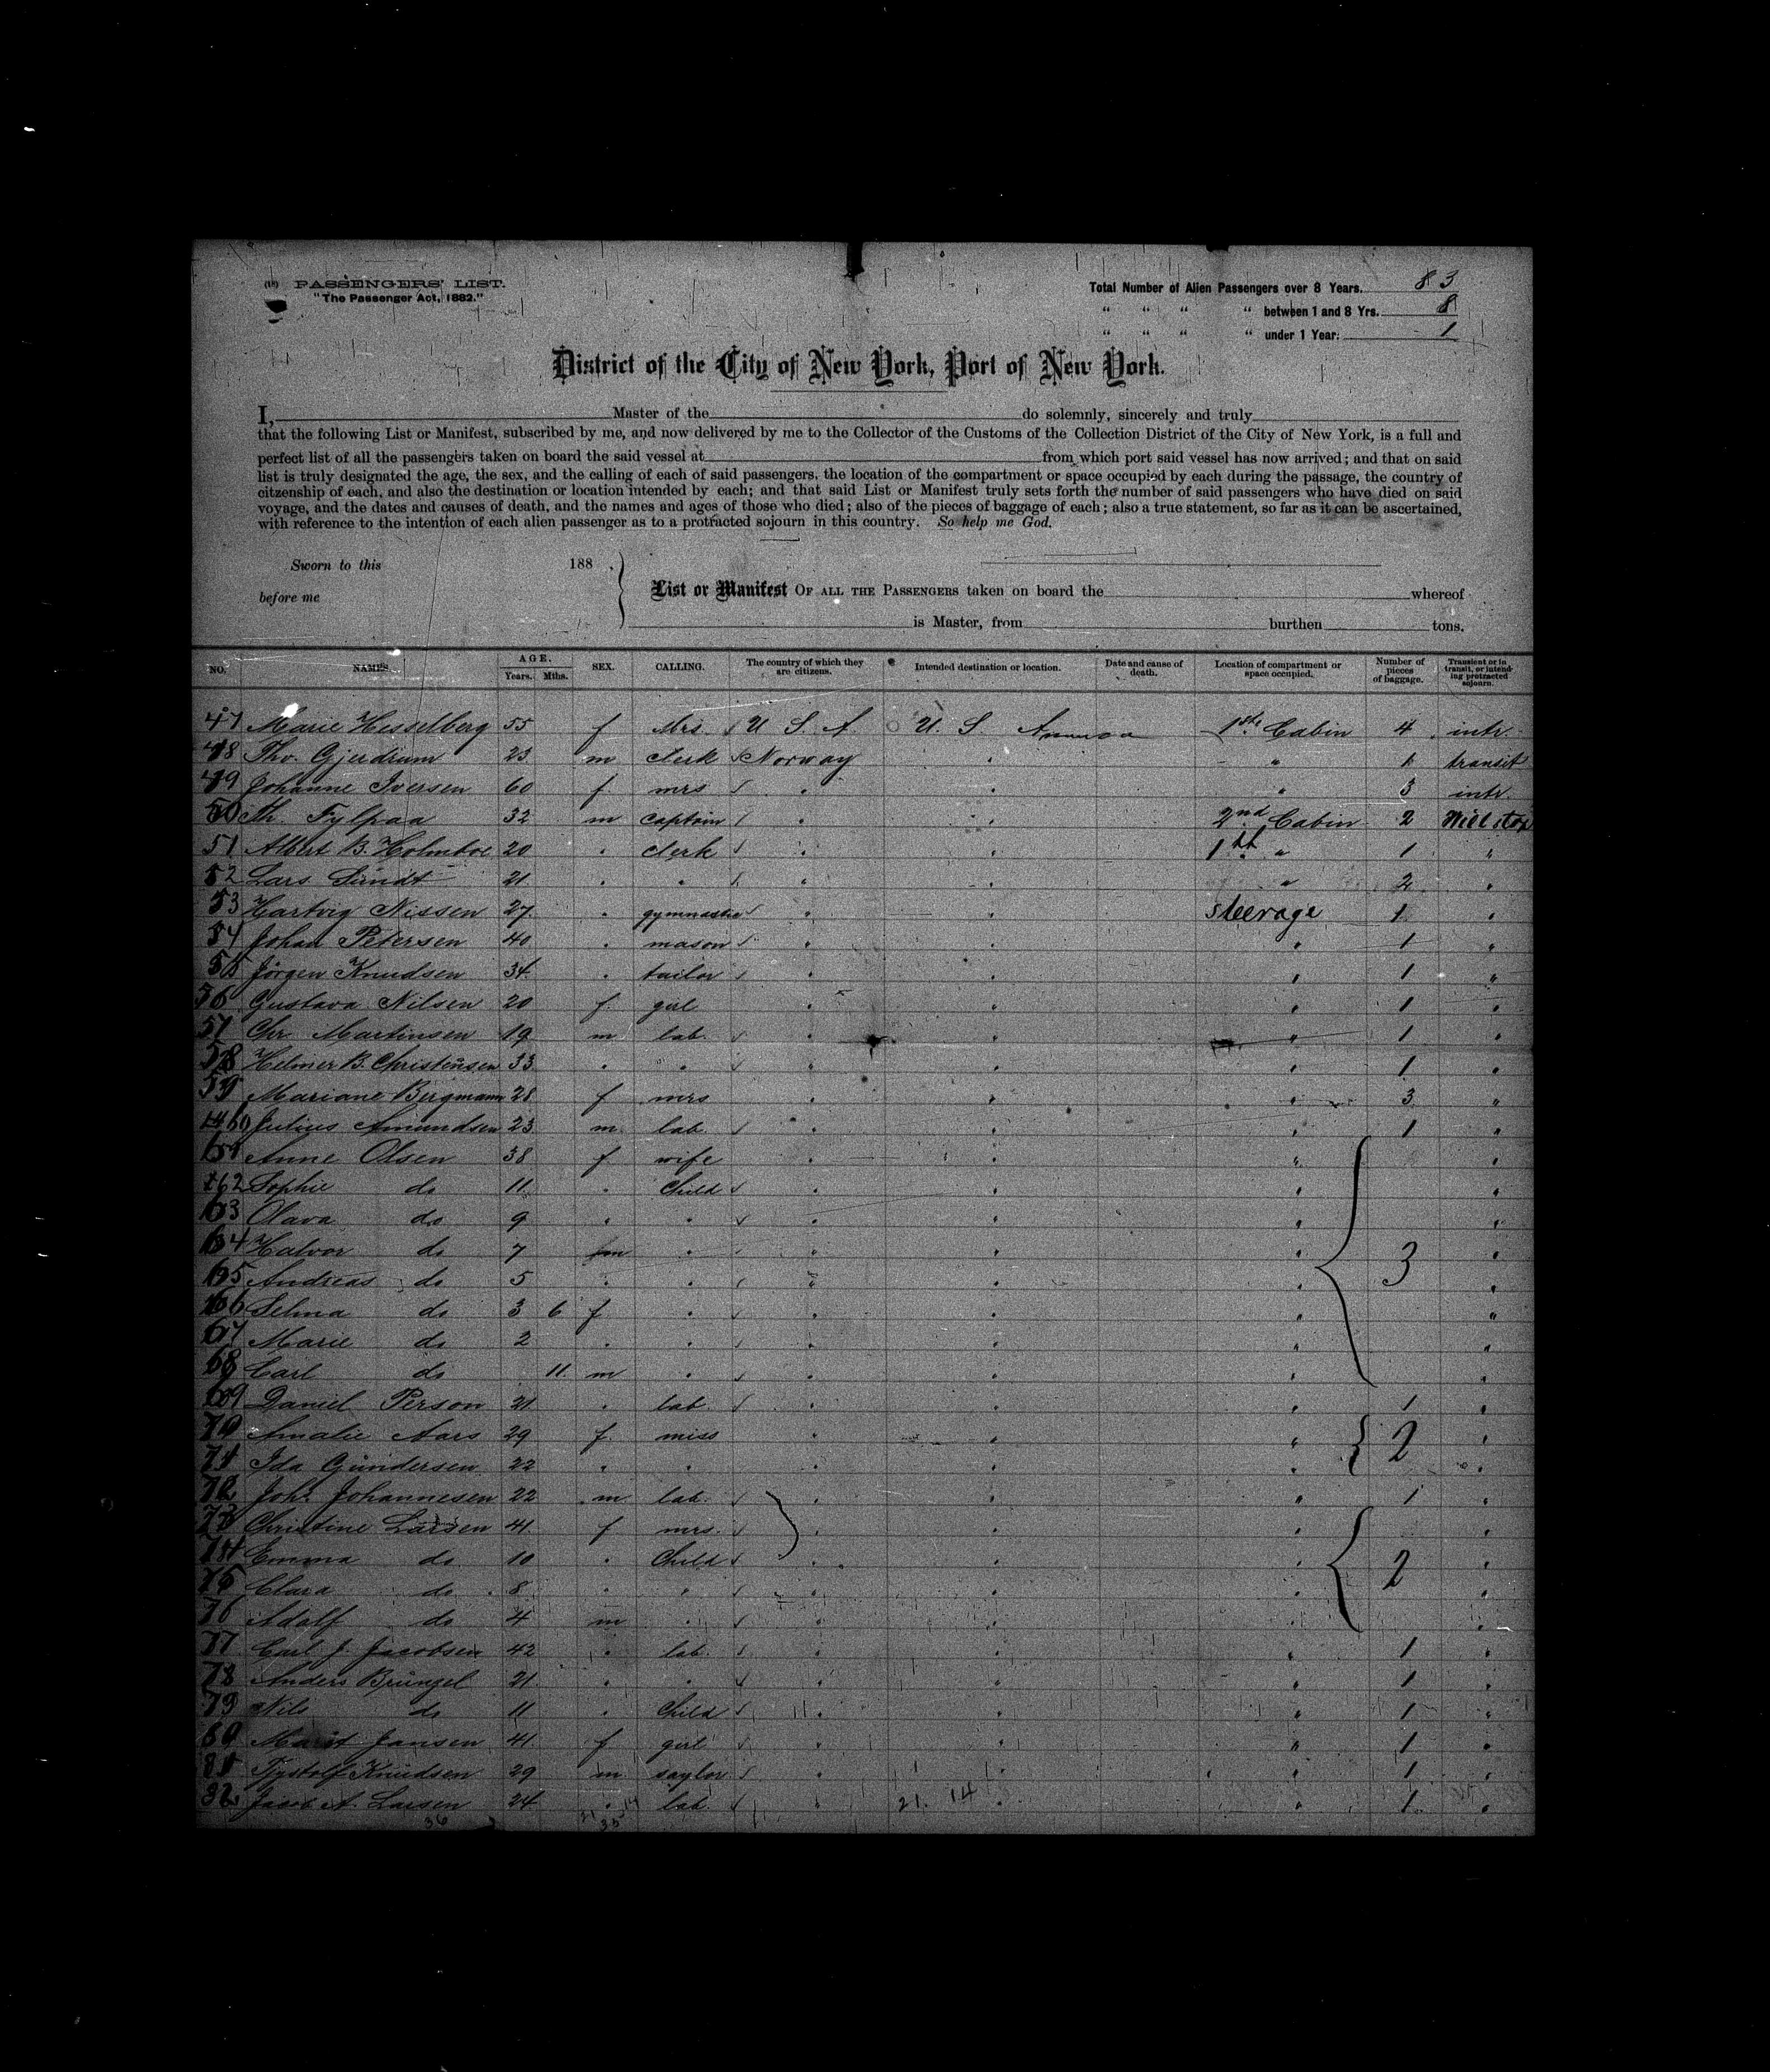 (18) PASSENGERS' LIST.
"The Passenger Act, 1882."
Total Number of Alien Passengers over 8 Years. 83
" " " " between 1 and 8 Yrs. 8
" " " " under 1 Year: 1
District of the City of New York, Port of New York.
I, Master of the do solemnly, sincerely and truly
that the following List or Manifest, subscribed by me, and now delivered by me to the Collector of the Customs of the Collection District of the City of New York, is a full and
perfect list of all the passengers taken on board the said vessel at from which port said vessel has now arrived; and that on said
list is truly designated the age, the sex, and the calling of each of said passengers, the location of the compartment or space occupied by each during the passage, the country of
citzenship of each, and also the destination or location intended by each; and that said List or Manifest truly sets forth the number of said passengers who have died on said
voyage, and the dates and causes of death, and the names and ages of those who died; also of the pieces of baggage of each; also a true statement, so far as it can be ascertained,
with reference to the intention of each alien passenger as to a protracted sojourn in this country. So help me God.
Sworn to this 188 .
before me
List or Manifest OF ALL THE PASSENGERS taken on board the whereof
is Master, from burthen tons.
NO. NAMES. AGE. Years. Mths. SEX. CALLING. The country of which they are citizens. Intended destination or location. Date and cause of death. Location of compartment or space occupied. Number of pieces of baggage. Transient or in transit, or intending protracted sojourn.
47 Marie Hesselberg 55 f Mrs U S A U. S. America 1st Cabin 4 intr.
48 Thv. Gjerdrum 23 m clerk Norway " " 1 transit
49 Johanne Iversen 60 f mrs " " " 3 intr.
50 Th. Fylpaa 32 m captain " " 2nd Cabin 2 Will stop
51 Albert B. Holmboe 20 " clerk " " 1th " 1 "
52 Lars Sundt 21 " " " " " 2 "
53 Hartvig Nissen 27 " gymnastic " " steerage 1 "
54 Johan Petersen 40 " mason " " " 1 "
55 Jörgen Knudsen 34 " tailor " " " 1 "
56 Gustava Nilsen 20 f. girl " " " 1 "
57 Chr. Martinsen 19 m lab. " " " 1 "
58 Helmer B. Christensen 33 " " " " " 1 "
59 Mariane Bergmann 28 f mrs " " " 3 "
60 Julius Amundsen 23 m. lab " " " 1 "
61 Anne Olsen 38 f wife " " " "
62 Sophie do 11 " Child " " " "
63 Olava do 9 " " " " " "
64 Halvor do 7 m " " " " 3 "
65 Andreas do 5 " " " " " "
66 Selma do 3 6 f " " " " "
67 Marie do 2 " " " " " "
68 Carl do 11 m " " " " "
69 Daniel Person 21 " lab " " " 1 "
70 Amalie Aars 29 f. miss " " " 2 "
71 Ida Gundersen 22 " " " " " "
72 Joh. Johannesen 22 m lab. " " " 1 "
73 Christine Larsen 41 f mrs. " " " "
74 Emma do 10 " Child " " " 2 "
75 Clara do 8 " " " " " "
76 Adolf do 4 m " " " " "
77 Carl J. Jacobsen 42 " lab. " " " 1 "
78 Anders Brüngel 21 " " " " " 1 "
79 Nils do 11 " Child " " " 1 "
80 Marit Jansen 41 f girl " " " 1 "
81 Tjostolf Knudsen 29 m saylor " " " 1 "
82 Jacob A. Larsen 24 " lab. " 21. 14 " " 1 "
36